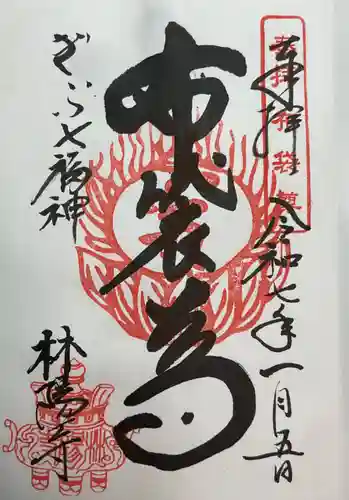 奉拝
令和七年一月五日
布袋尊
ぎふ七福神
林陽寺